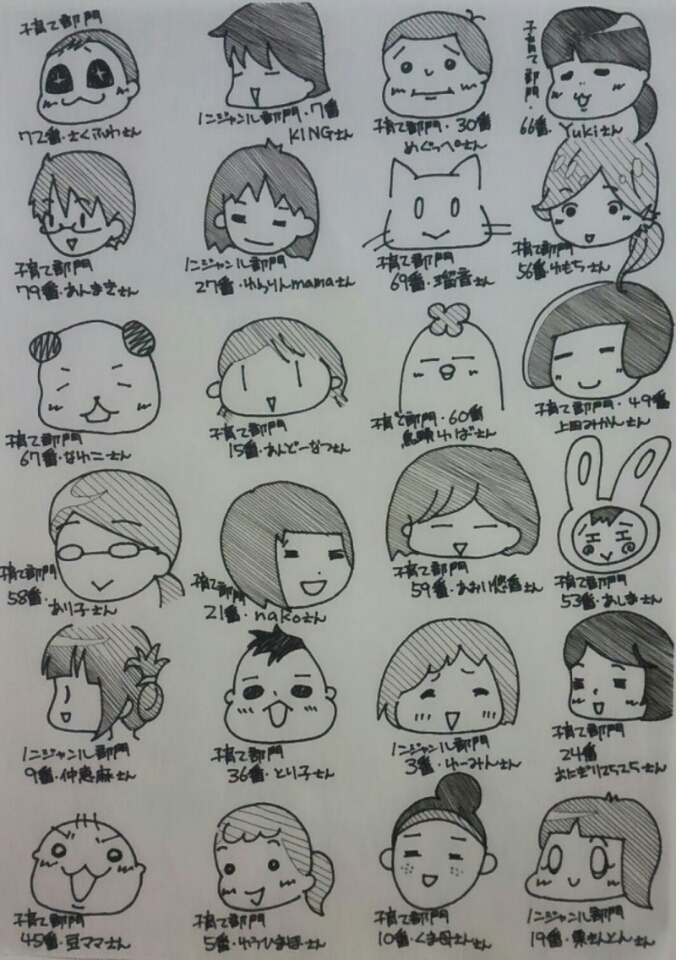 子育て部門
72番・さくふわさん
ノンジャンル部門・7番
KINGさん
子育て部門・30番
めぐっぺさん
子育て部門・
66番・Yukiさん
子育て部門
79番・あんまきさん
ノンジャンル部門
27番・ゆうりんmamaさん
子育て部門
69番・瑠音さん
子育て部門
56番・ゆもちさん
子育て部門
67番・なわこさん
子育て部門
15番・あんどーなつさん
子育て部門・60番
鳥頭ゆばさん
子育て部門・49番
上田みかんさん
子育て部門
58番・あり子さん
子育て部門
21番・nakoさん
子育て部門
59番・あおい悠香さん
子育て部門
53番・あしまさん
ノンジャンル部門
9番・仲恵麻さん
子育て部門
36番・とり子さん
ノンジャンル部門
3番・ゆーみんさん
子育て部門
24番
おにぎり
子育て部門
45番・豆ママさん
子育て部門
5番・ゆうひままさん
子育て部門
10番・くま母さん
ノンジャンル部門
19番・